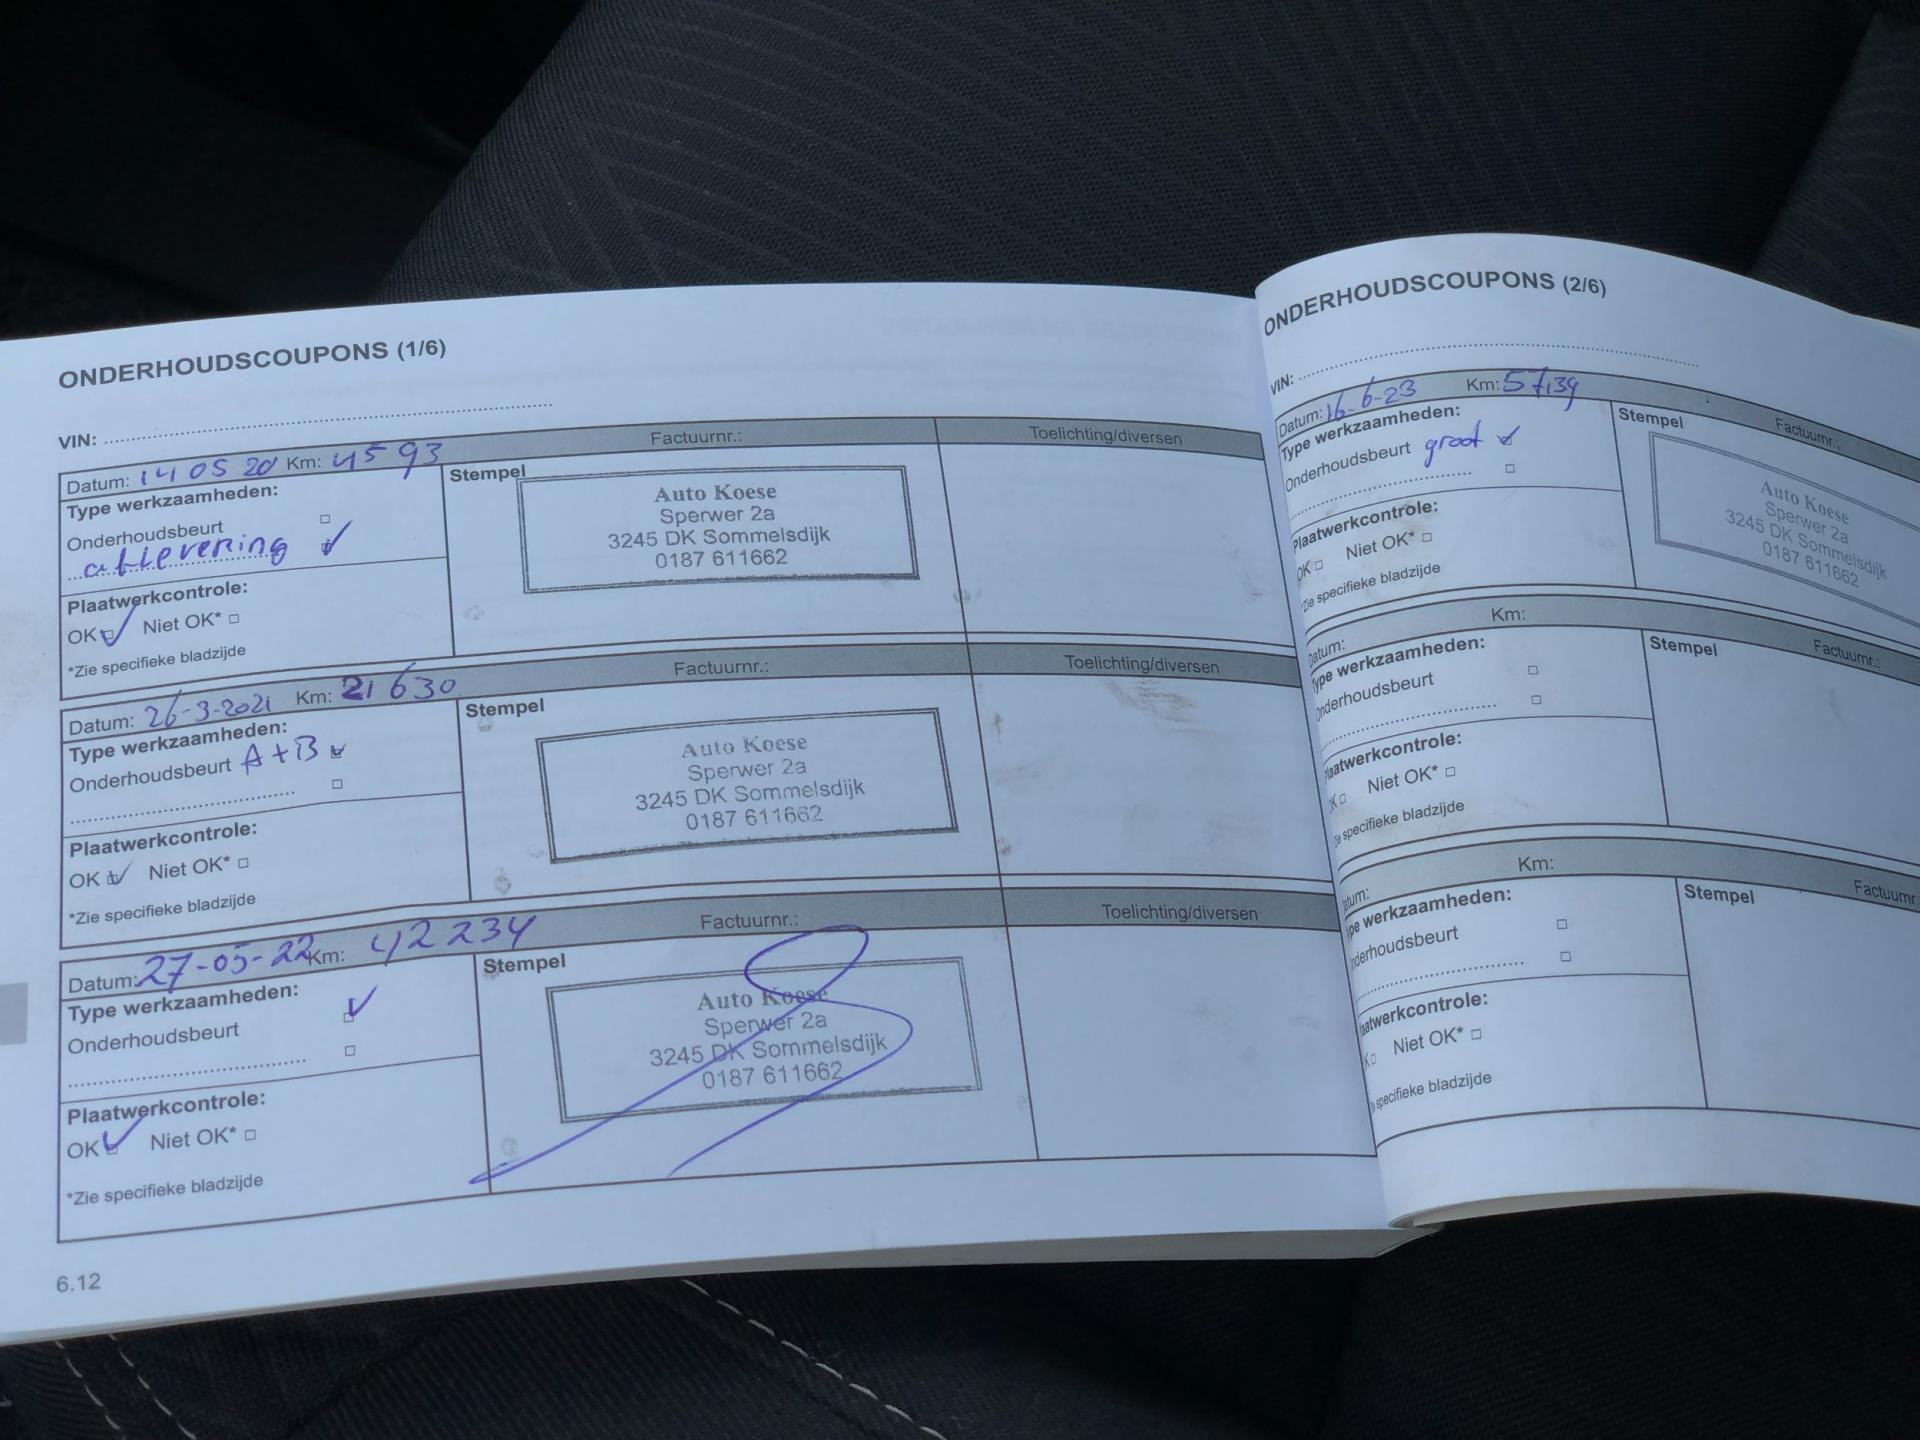 ONDERHOUDSCOUPONS (1/6)
VIN:
Datum: 14 05 20 Km: 4593 Factuurnr.: Toelichting/diversen
Type werkzaamheden:
Stempel
Onderhoudsbeurt
aflevering
Auto Koese
Sperwer 2a
3245 DK Sommelsdijk
0187 611662
Plaatwerkcontrole:
OK Niet OK*
*Zie specifieke bladzijde
Datum: 26-3-2021 Km: 21630 Factuurnr.: Toelichting/diversen
Type werkzaamheden:
Stempel
Onderhoudsbeurt A+B
Auto Koese
Sperwer 2a
3245 DK Sommelsdijk
0187 611662
Plaatwerkcontrole:
OK Niet OK*
*Zie specifieke bladzijde
Datum: 27-05-22 Km: 42234 Factuurnr.: Toelichting/diversen
Type werkzaamheden:
Stempel
Onderhoudsbeurt
Auto Koese
Sperwer 2a
3245 DK Sommelsdijk
0187 611662
Plaatwerkcontrole:
OK Niet OK*
*Zie specifieke bladzijde
6.12
ONDERHOUDSCOUPONS (2/6)
VIN:
Datum: 16-6-23 Km: 57139 Factuurnr.:
Type werkzaamheden:
Stempel
Onderhoudsbeurt groot
Auto Koese
Sperwer 2a
3245 DK Sommelsdijk
0187 611662
Plaatwerkcontrole:
OK Niet OK*
*Zie specifieke bladzijde
Datum: Km: Factuurnr.:
Type werkzaamheden:
Stempel
Onderhoudsbeurt
Plaatwerkcontrole:
OK Niet OK*
specifieke bladzijde
Km: Factuurnr.
werkzaamheden:
Stempel
Onderhoudsbeurt
Plaatwerkcontrole:
Niet OK*
specifieke bladzijde